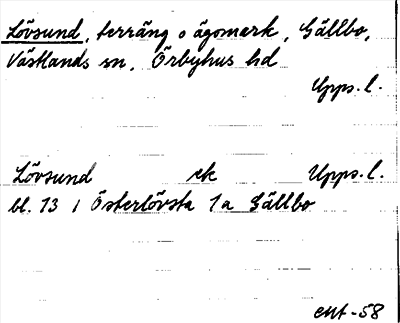 Lövsund, terräng o ägomark, Gällbo,
Västlands sn, Örbyhus hd
Upps. l.
Lövsund ek Upps. l.
bl. 13 i Österlövsta 1a Gällbo
-58